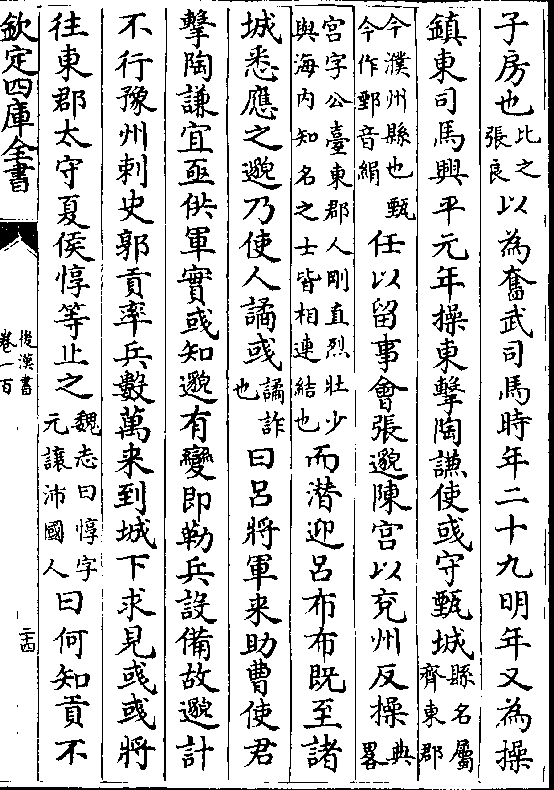 子房也比之張良以為奮武司馬時年二十九明年又為操
鎮東司馬興平元年操東擊陶謙使彧守甄城縣名屬齊東郡
今濮州縣也甄今作鄄音絹任以留事會張邈陳宫以兗州反操典畧
宫字公臺東郡人剛直烈壯少與海内知名之士皆相連結也而潜迎吕布布既至諸
城悉應之邈乃使人譎彧譎詐也曰吕將軍来助曹使君
擊陶謙宜亟供軍實彧知邈有變即勒兵設備故邈計
不行豫州刺史郭貢率兵數萬来到城下求見彧彧將
往東郡太守夏侯惇等止之魏志曰惇字元讓沛國人曰何知貢不
欽定四庫全書
後漢書
卷一百
二十四